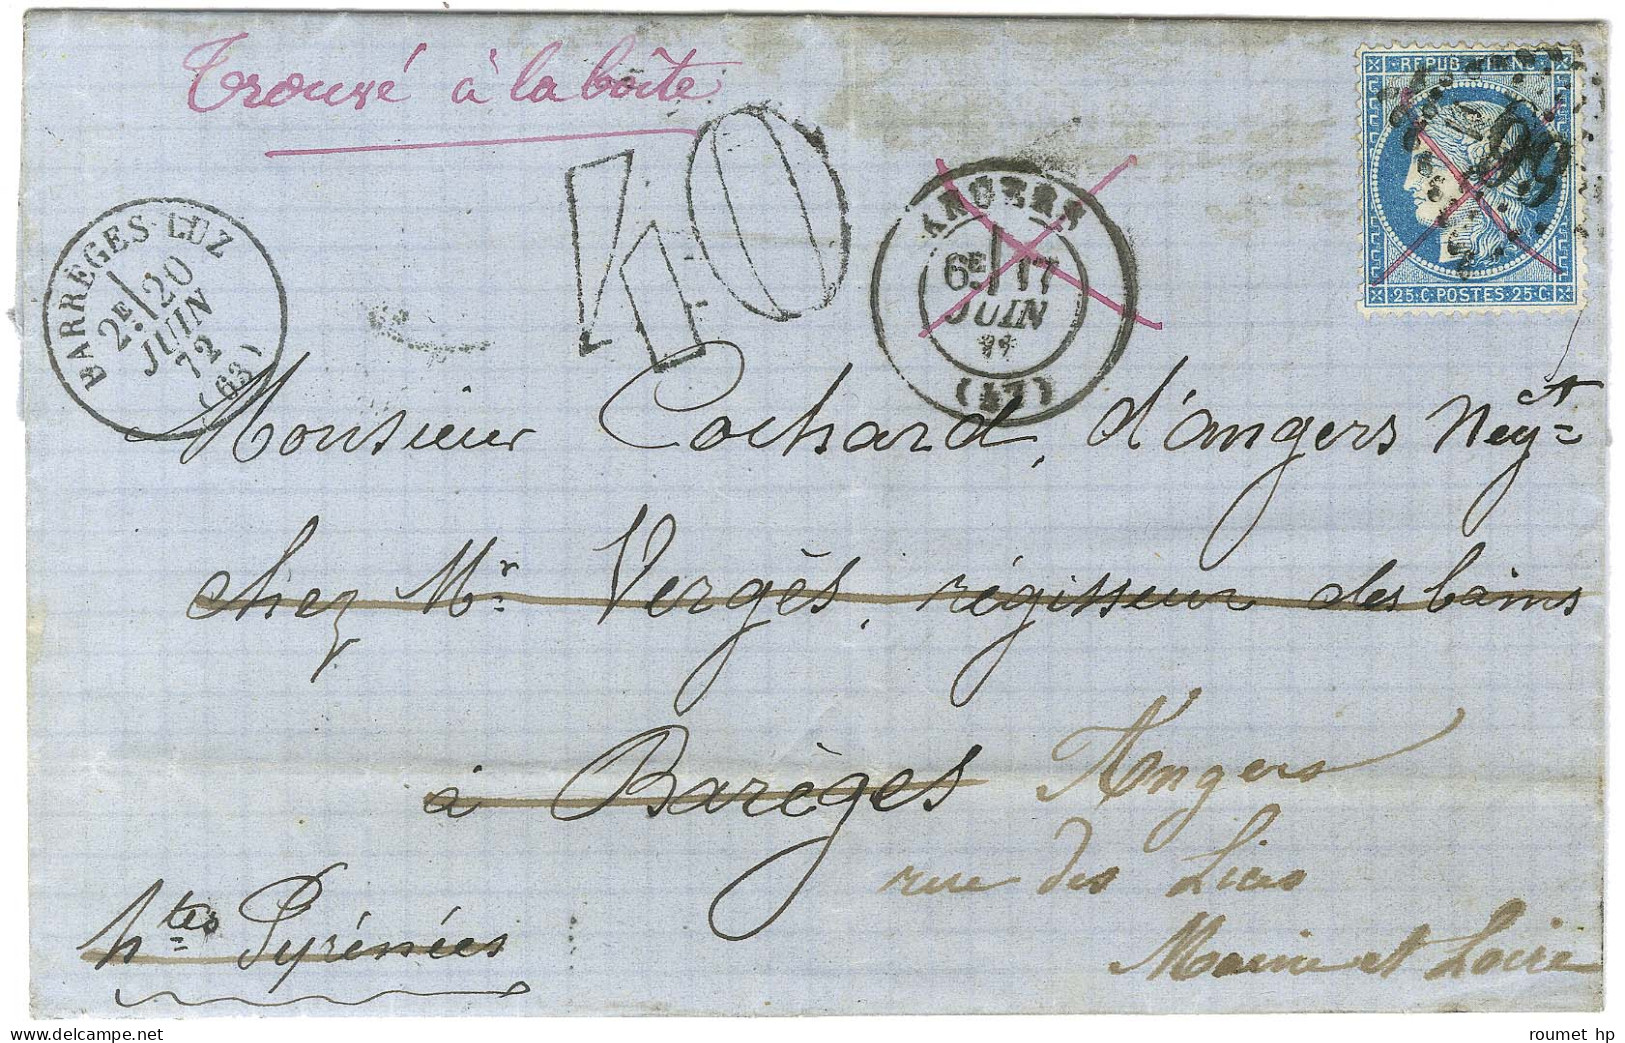 Trouvé à la boîte
40
REPUB FRANC
99
25·C·POSTES·25·C·
BARRÈGES-LUZ
2E 20
JUIN
72
(63)
ANGERS
6E 17
JUIN
(47)
Monsieur Cochard, d'angers Négt
chez Mr Vergès, régisseur des bains
à Barèges
Angers
rue des Lices
Maine et Loire
htes Pyrénées
roumet hp